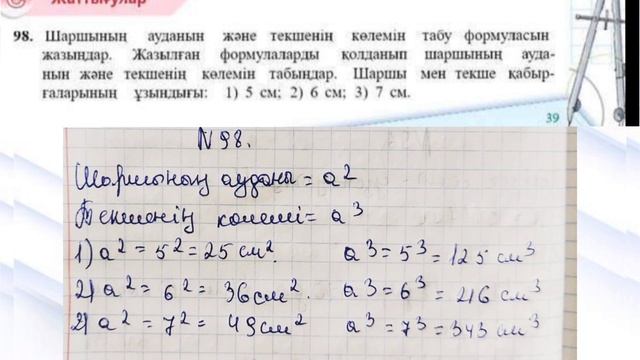 Жаттығулар
98. Шаршының ауданын және текшенің көлемін табу формуласын
жазыңдар. Жазылған формулаларды қолданып шаршының ауда-
нын және текшенің көлемін табыңдар. Шаршы мен текше қабыр-
ғаларының ұзындығы: 1) 5 см; 2) 6 см; 3) 7 см.
39
N98.
Шаршының ауданы = a²
Текшенің көлемі = a³
1) a² = 5² = 25 см². a³ = 5³ = 125 см³
2) a² = 6² = 36 см². a³ = 6³ = 216 см³
3) a² = 7² = 49 см² a³ = 7³ = 343 см³